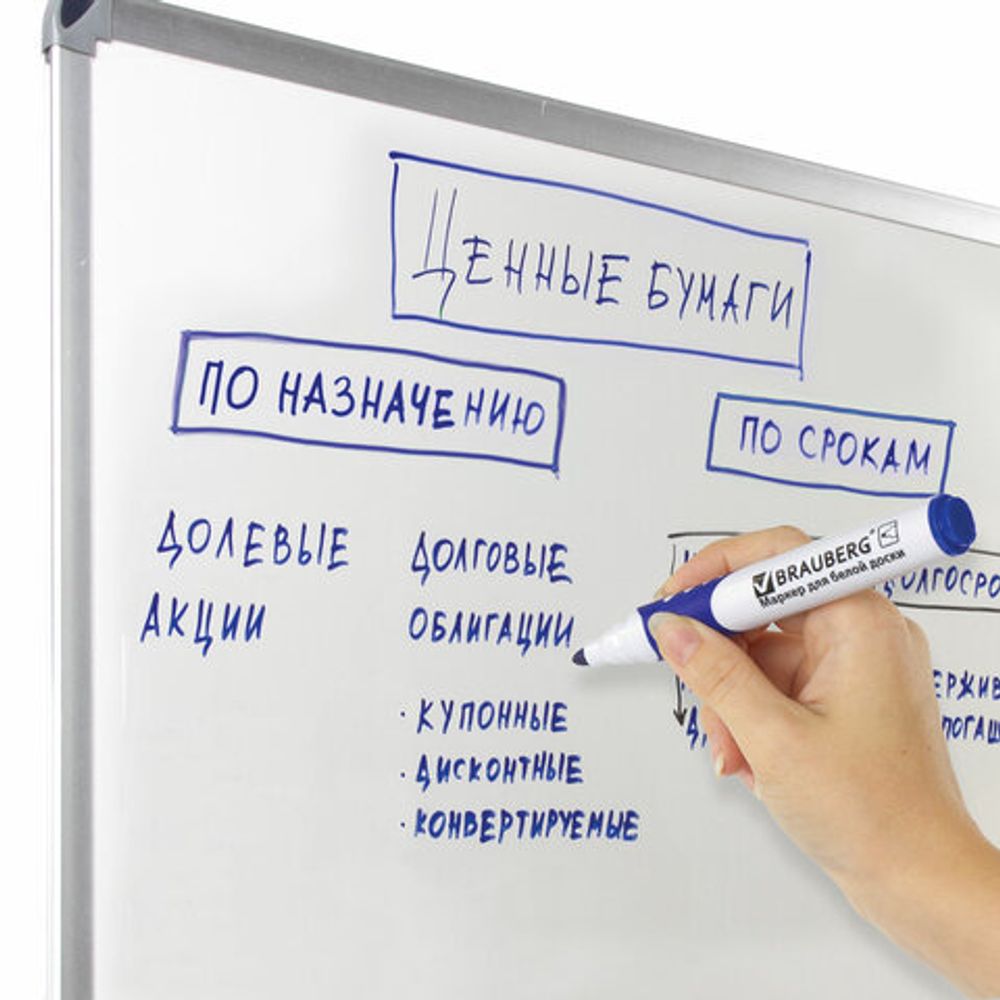 Ценные бумаги
ПО НАЗНАЧЕНИЮ
ПО СРОКАМ
ДОЛЕВЫЕ
АКЦИИ
ДОЛГОВЫЕ
ОБЛИГАЦИИ
· КУПОННЫЕ
· ДИСКОНТНЫЕ
· КОНВЕРТИРУЕМЫЕ
BRAUBERG®
Маркер для белой доски